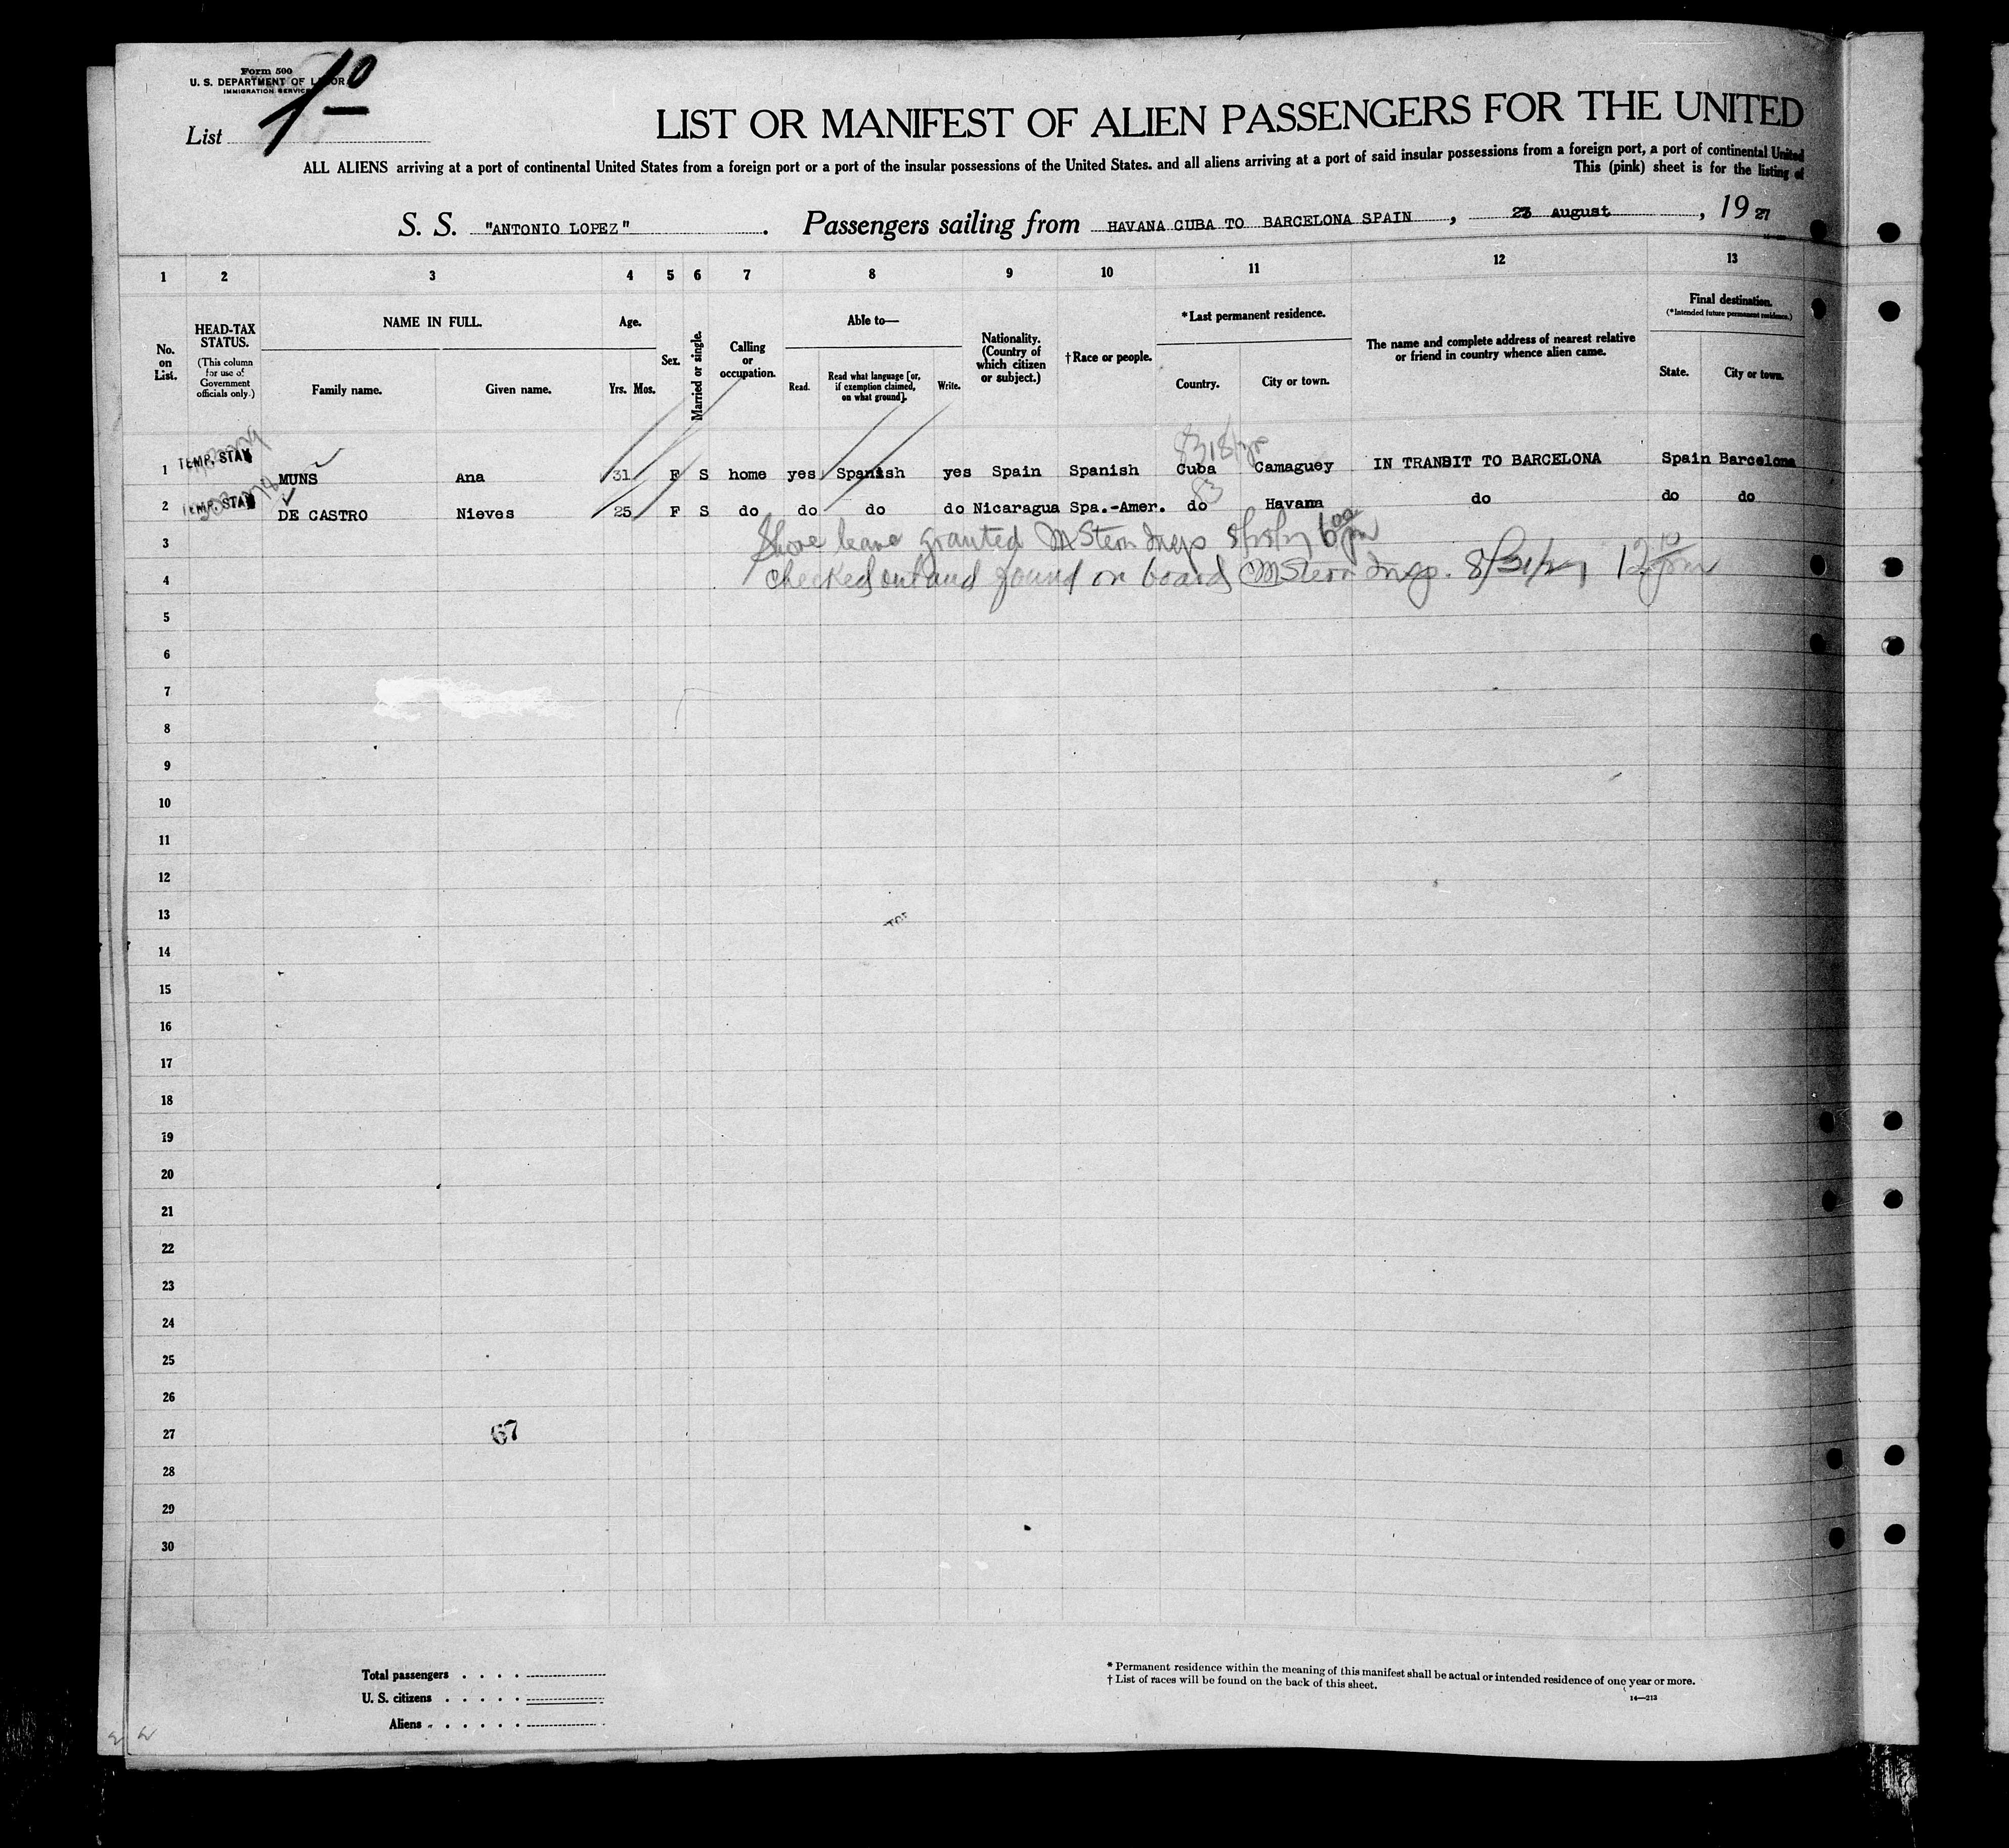 Form 500
U. S. DEPARTMENT OF LABOR
IMMIGRATION SERVICE
List 10
LIST OR MANIFEST OF ALIEN PASSENGERS FOR THE UNITED
ALL ALIENS arriving at a port of continental United States from a foreign port or a port of the insular possessions of the United States. and all aliens arriving at a port of said insular possessions from a foreign port, a port of continental United
This (pink) sheet is for the listing of
S. S. "ANTONIO LOPEZ". Passengers sailing from HAVANA CUBA TO BARCELONA SPAIN, 23 August, 19 27
1 2 3 4 5 6 7 8 9 10 11 12 13
No. on List.
HEAD-TAX STATUS.
(This column for use of Government officials only.)
NAME IN FULL.
Family name. Given name.
Age.
Yrs. Mos.
Sex.
Married or single.
Calling or occupation.
Able to—
Read. Read what language [or, if exemption claimed, on what ground]. Write.
Nationality. (Country of which citizen or subject.)
†Race or people.
*Last permanent residence.
Country. City or town.
The name and complete address of nearest relative or friend in country whence alien came.
Final destination.
(*Intended future permanent residence.)
State. City or town.
8318/
1 TEMP. STAY MUNS Ana 31 F S home yes Spanish yes Spain Spanish Cuba Camaguey IN TRANSIT TO BARCELONA Spain Barcelona
83
2 TEMP. STAY DE CASTRO Nieves 25 F S do do do do Nicaragua Spa.-Amer. do Havana do do do
3 Shore leave granted M Stern Insp 6 00 pm
4 checked out and found on board M Stern Insp. 8/31/27 12 10 pm
5
6
7
8
9
10
11
12
13
14
15
16
17
18
19
20
21
22
23
24
25
26
27 67
28
29
30
Total passengers . . . .
U. S. citizens . . . . .
Aliens . . . . . .
* Permanent residence within the meaning of this manifest shall be actual or intended residence of one year or more.
† List of races will be found on the back of this sheet.
14—213